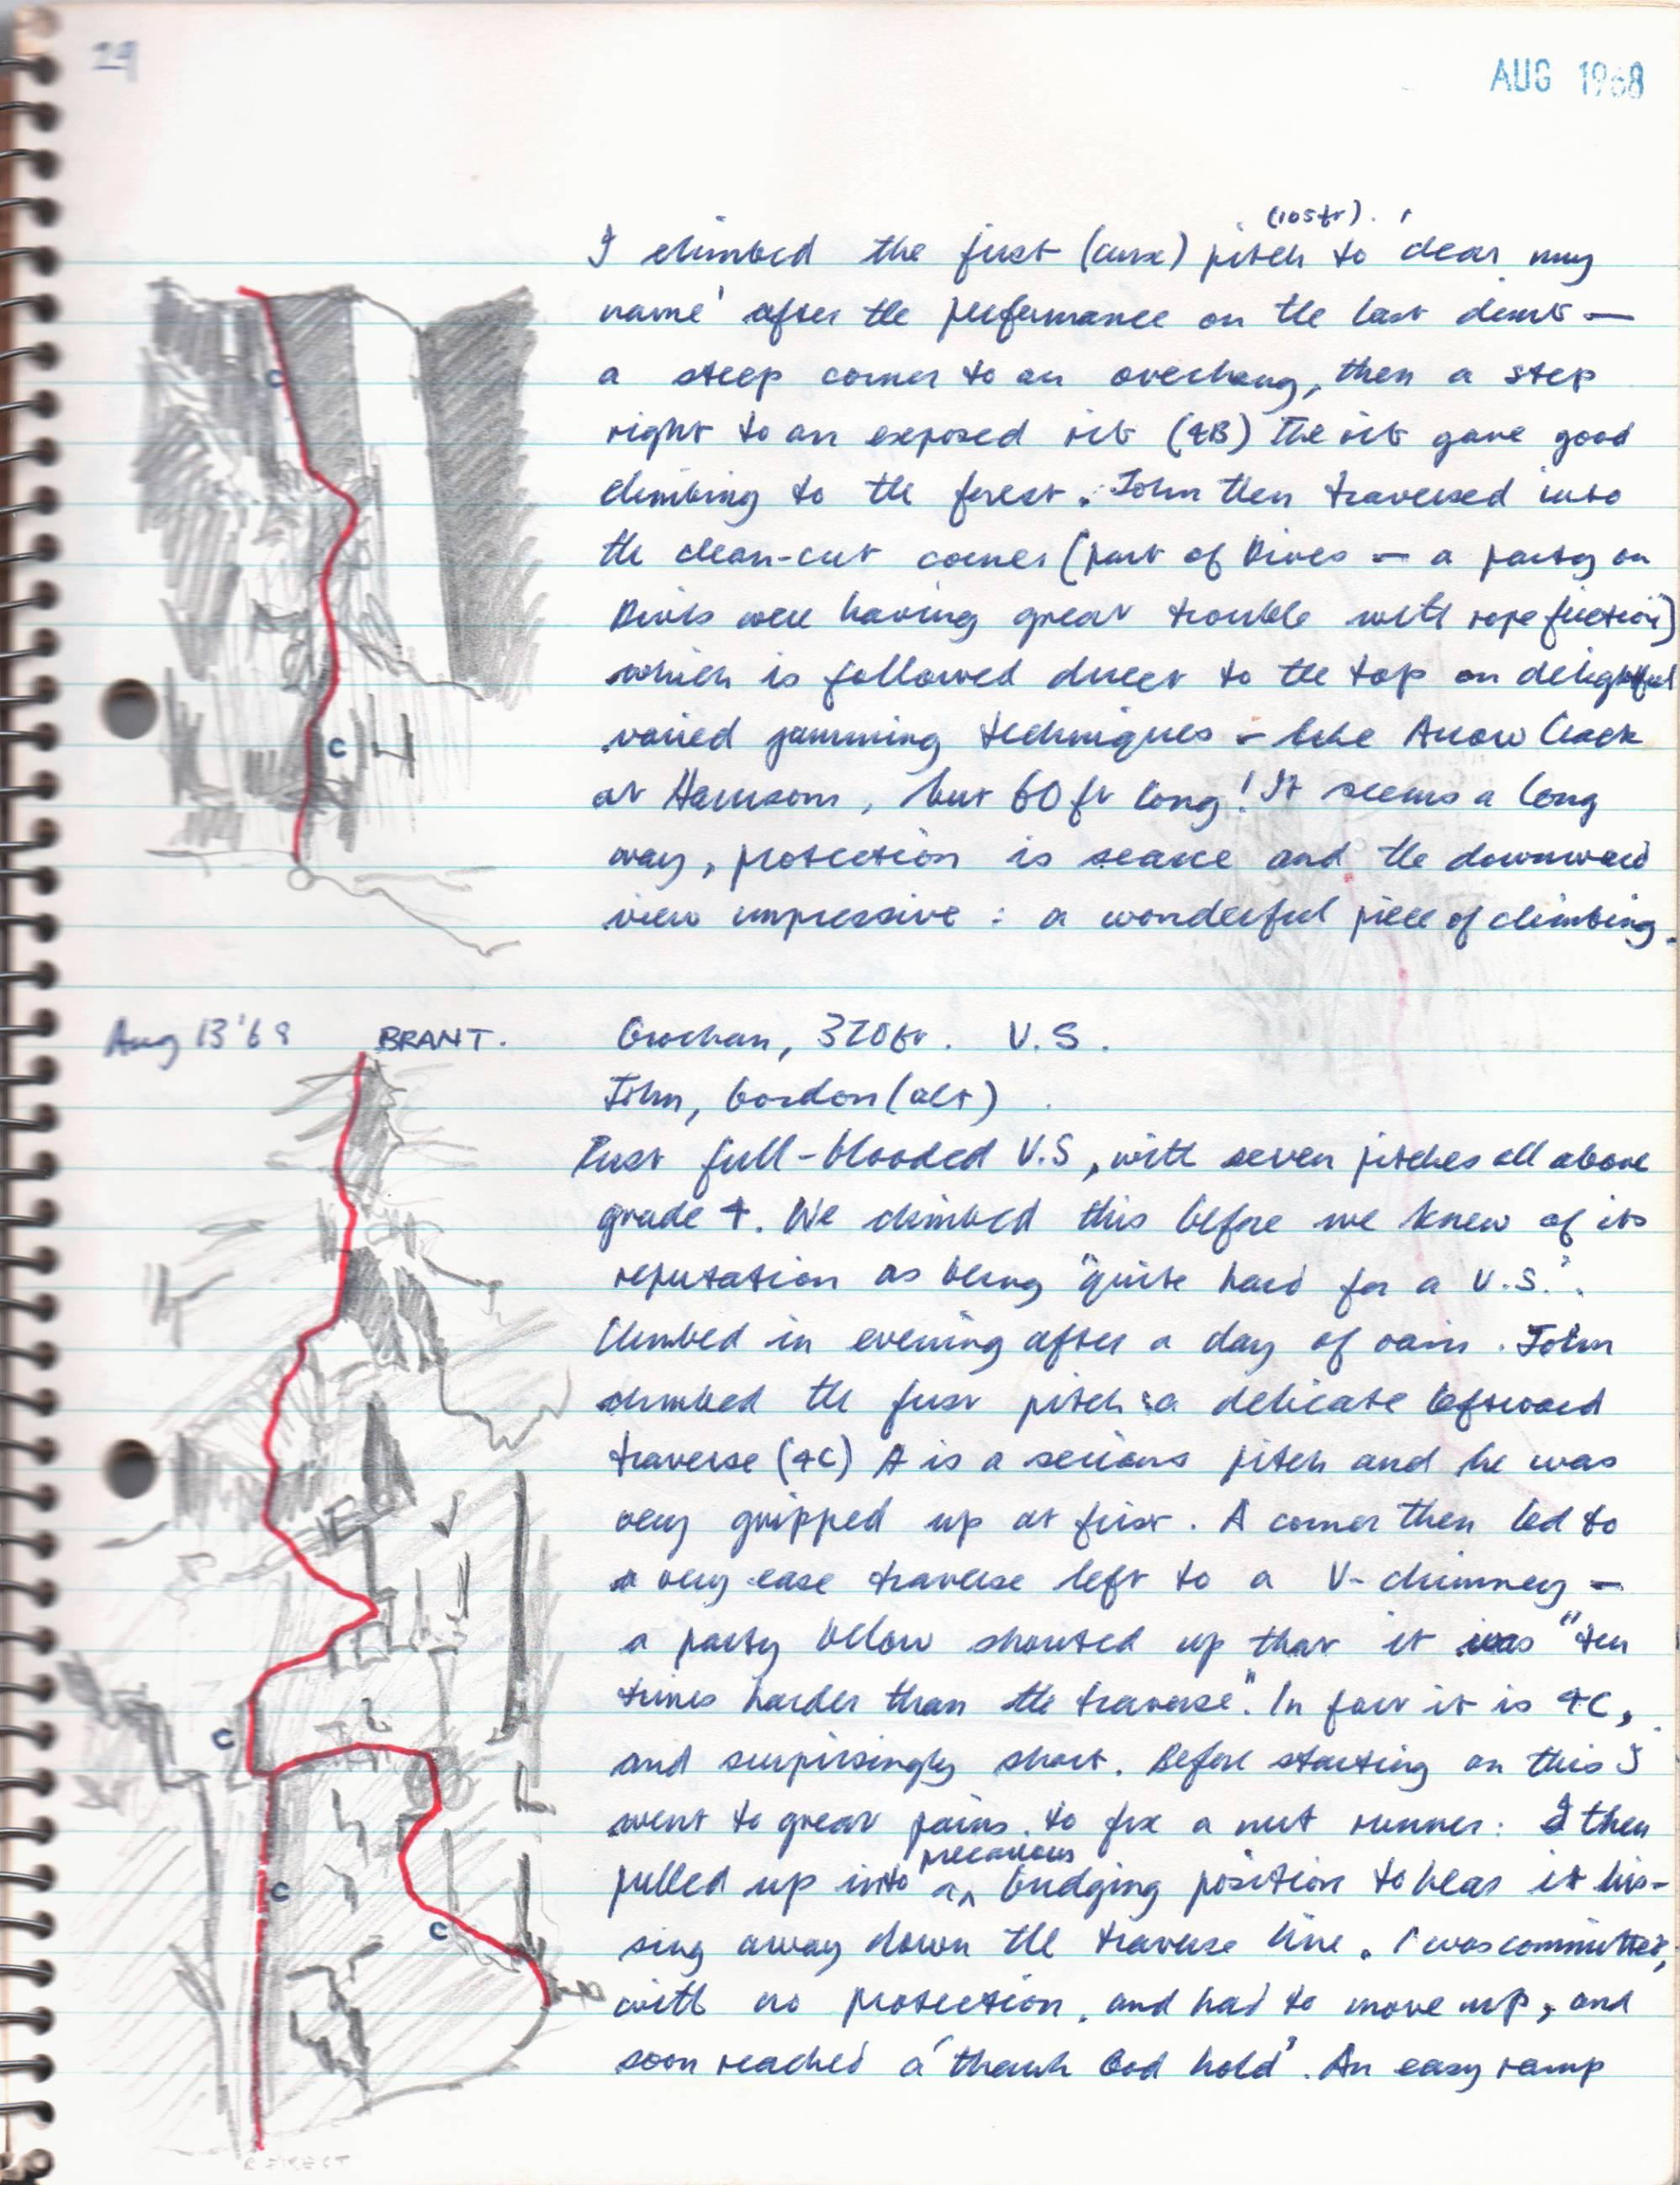 29
AUG 1968
(105ft).
I climbed the first (crux) pitch to 'clear my
name' after the performance on the last climb —
a steep corner to an overhang, then a step
right to an exposed rib (4B) The rib gave good
climbing to the forest. John then traversed into
the clean-cut corner (part of Dives — a party on
Dives were having great trouble with rope friction)
which is followed direct to the top on delightful
varied jamming techniques - like Arrow Crack
at Harrisons, but 60 ft long! It seems a long
way, protection is scarce and the downward
view impressive: a wonderful piece of climbing.
Aug 13 '68 BRANT. Grochan, 320ft. V.S.
John, Gordon (alt)
First full-blooded V.S, with seven pitches all above
grade 4. We climbed this before we knew of its
reputation as being "quite hard for a V.S.".
Climbed in evening after a day of rain. John
climbed the first pitch: a delicate leftward
traverse (4C) It is a serious pitch and he was
very gripped up at first. A corner then led to
a very ease traverse left to a V-chimney —
a party below shouted up that it was "ten
times harder than the traverse". In fact it is 4C,
and surpirsingly short. Before starting on this I
went to great pains to fix a nut runner: I then
precarious
pulled up into a bridging position to hear it his-
sing away down the traverse line. I was committed,
with no protection, and had to move up, and
soon reached a "thank God hold". An easy ramp
C
C
C
C
C
DIRECT